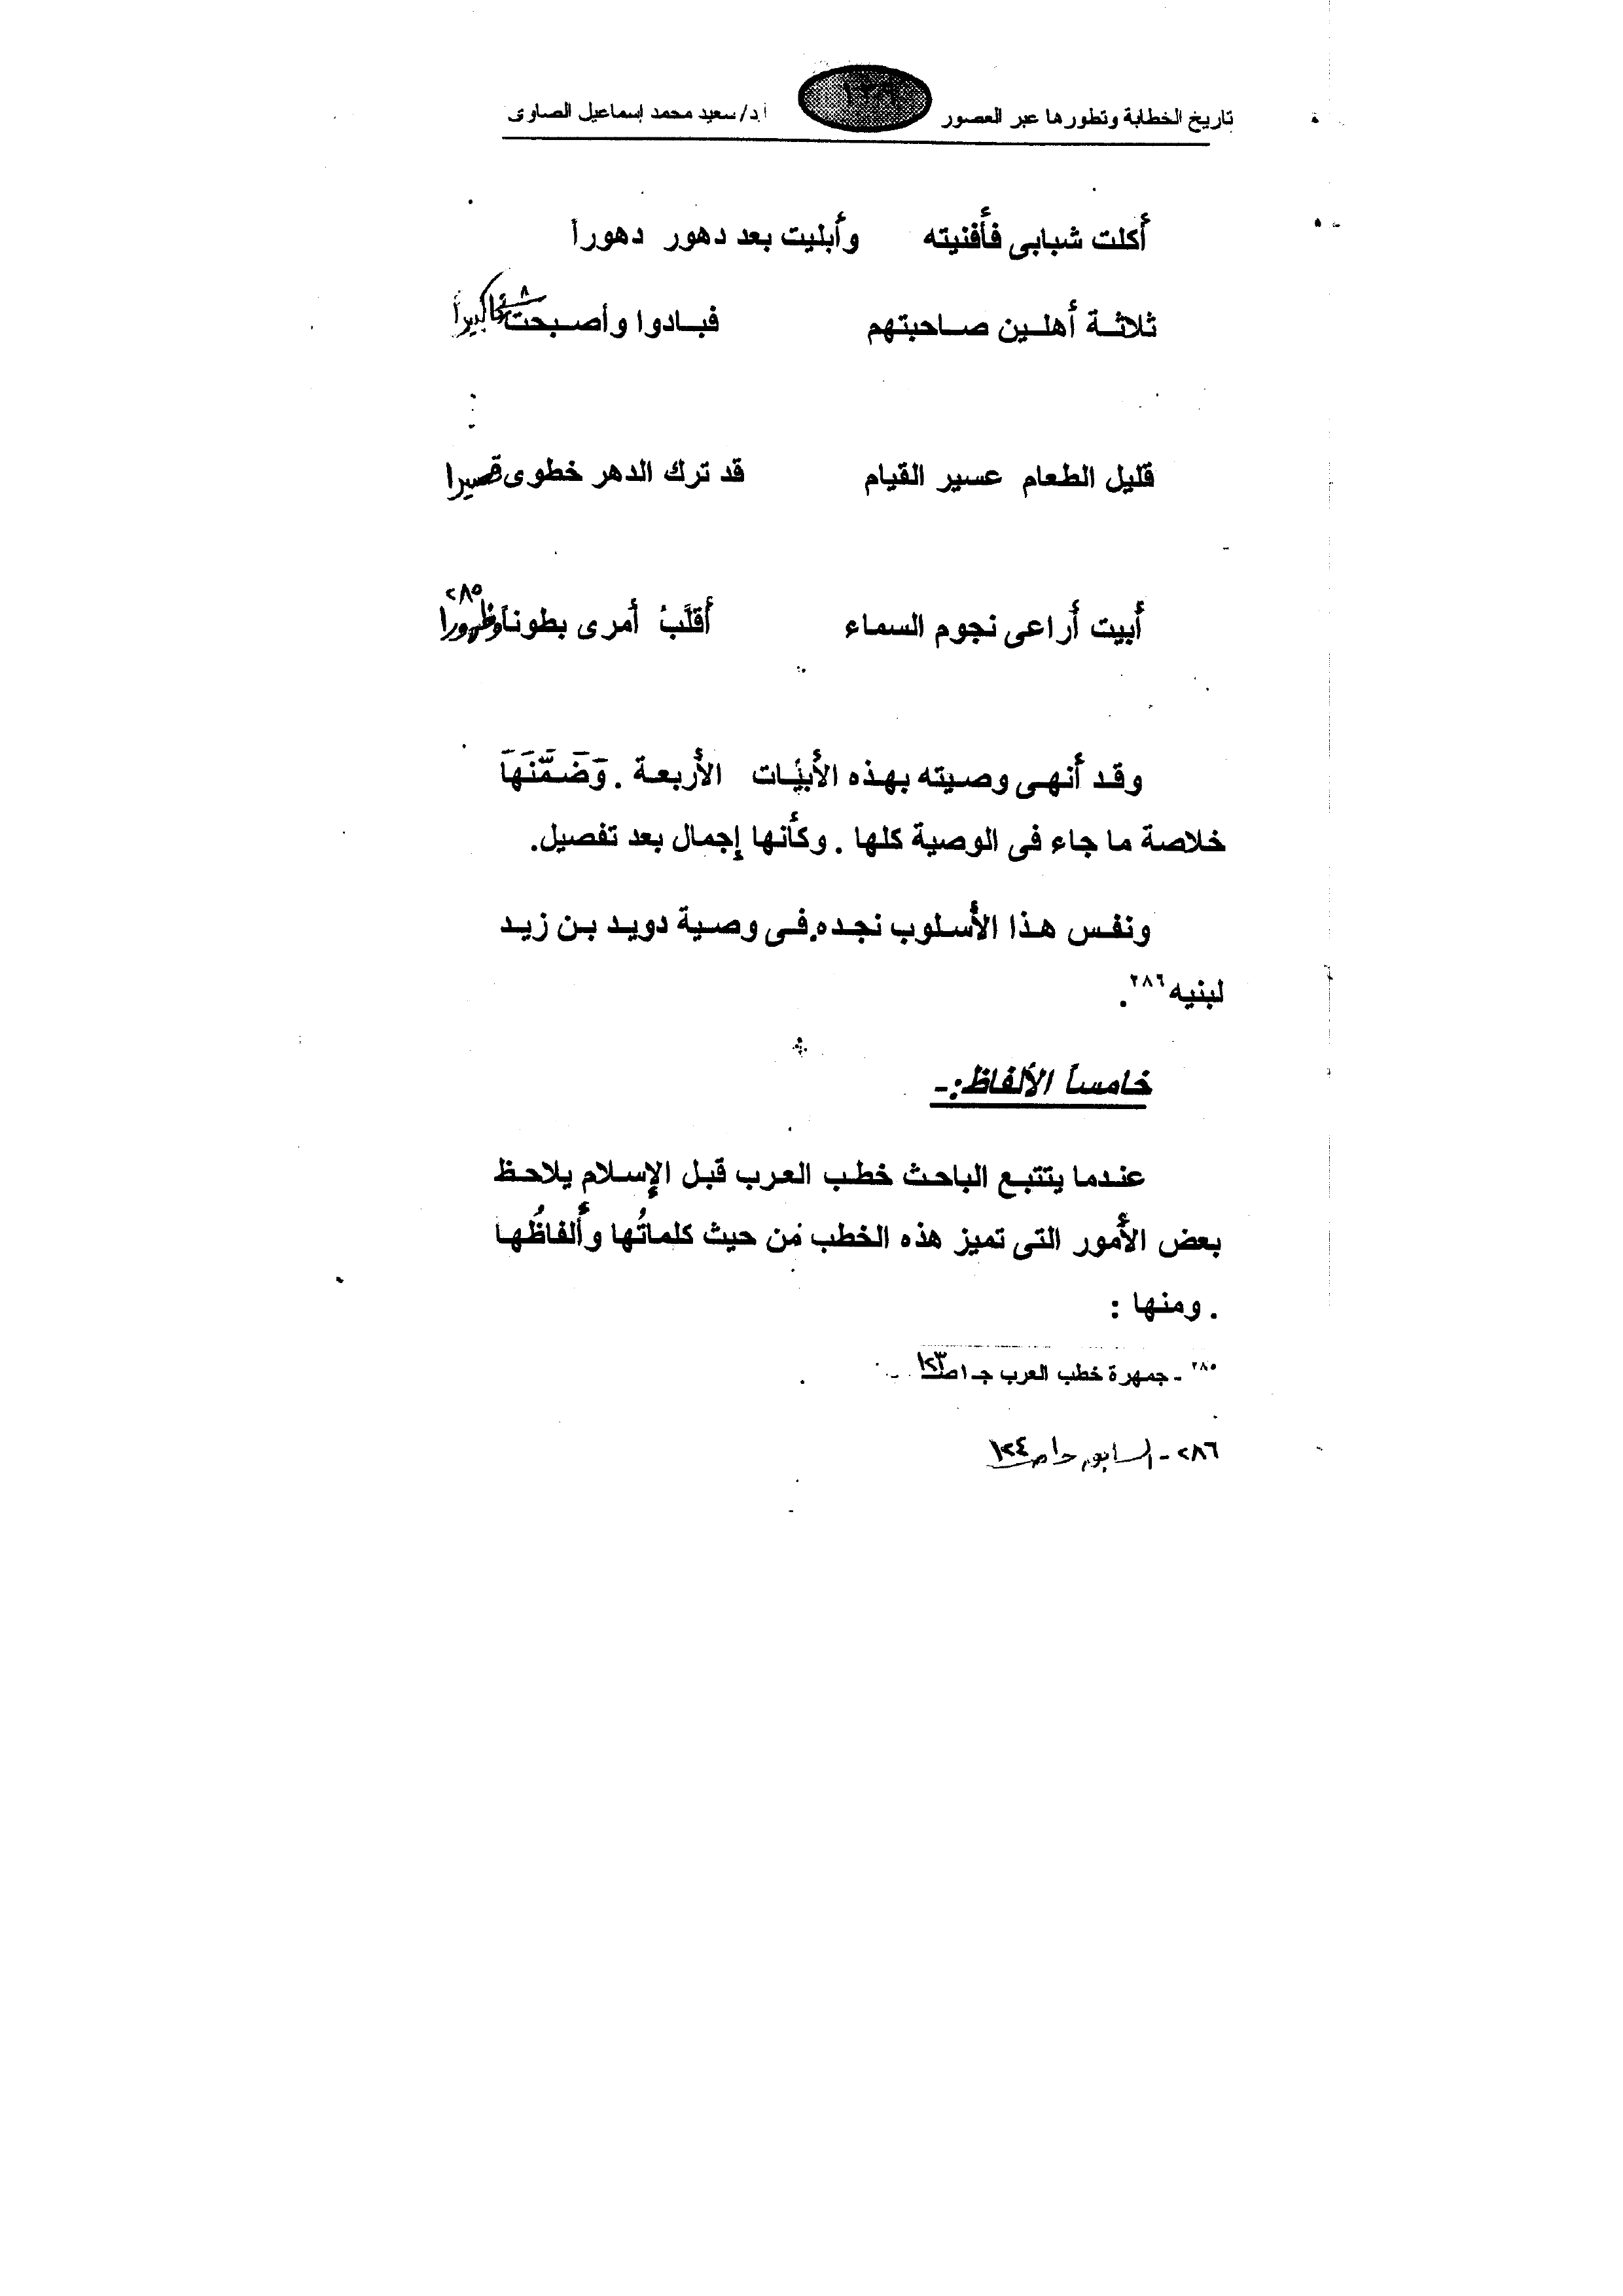 تاريخ الخطابة وتطورها عبر العصور أ.د/ سعيد محمد إسماعيل الصاوى
أكلت شبابى فأفنيته وأبليت بعد دهور دهوراً
ثلاثة أهلين صاحبتهم فبادوا وأصبحت شيخاً كبيراً
قليل الطعام عسير القيام قد ترك الدهر خطوى قصيرا
أبيت أراعى نجوم السماء أقلَّبُ أمرى بطوناً وظهورا ٢٨٥
وقد أنهى وصيته بهذه الأبيَات الأربعة . وَضَمَّنَهَا
خلاصة ما جاء فى الوصية كلها . وكأنها إجمال بعد تفصيل.
ونفس هذا الأسلوب نجده فى وصية دويد بن زيد
لبنيه ٢٨٦.
خامساً الألفاظ:-
عندما يتتبع الباحث خطب العرب قبل الإسلام يلاحظ
بعض الأمور التى تميز هذه الخطب من حيث كلماتُها وألفاظُها
. ومنها :
٢٨٥ - جمهرة خطب العرب جـ١ صـ ١٢٣
٢٨٦ - السابق حـ١ صـ ١٢٤